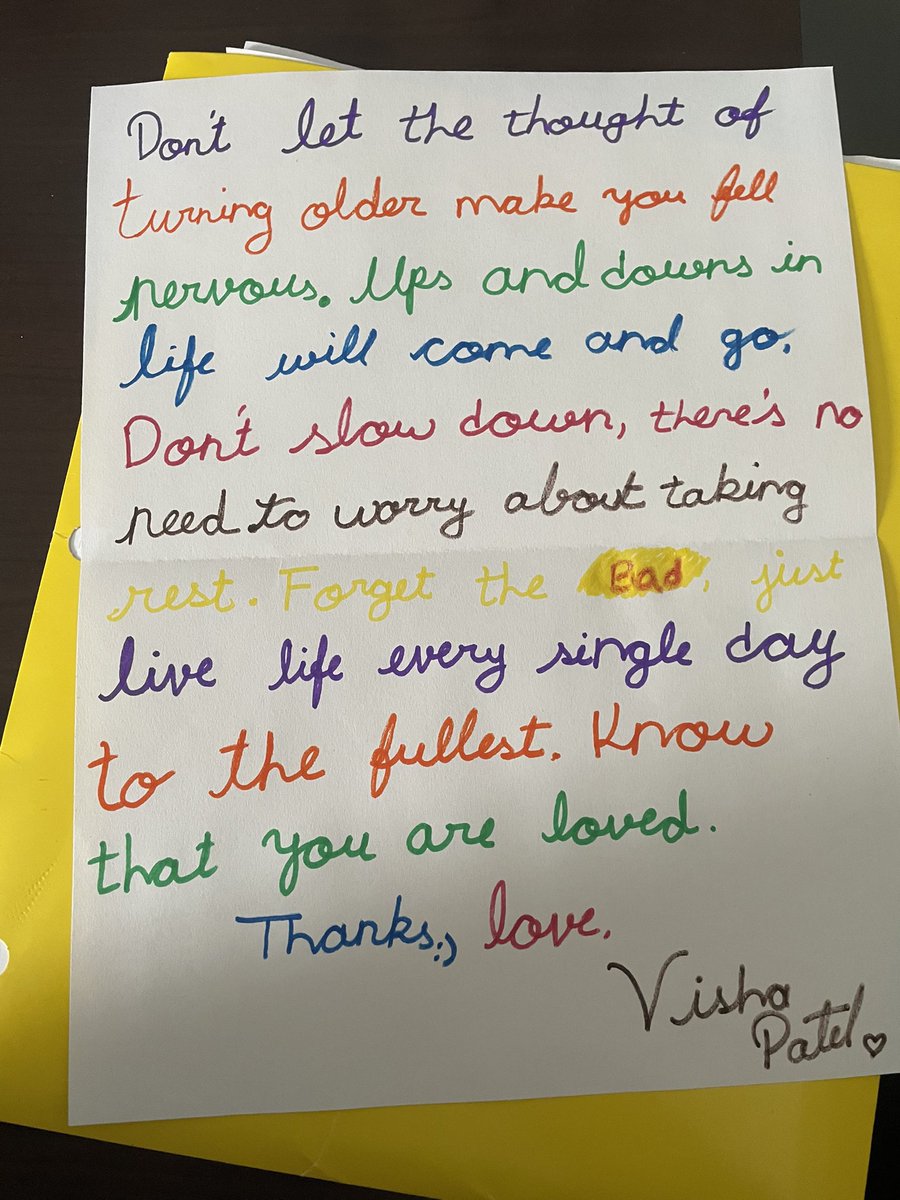 Don't let the thought of
turning older make you fell
nervous. Ups and downs in
life will come and go.
Don't slow down, there's no
need to worry about taking
rest. Forget the Bad, just
live life every single day
to the fullest. Know
that you are loved.
Thanks:, love.
Visha
Patel